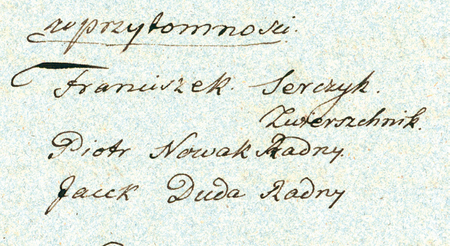 w przytomności.
Franciszek Serczyk.
Zwierszchnik.
Piotr Nowak Radny.
Jacek Duda Radny